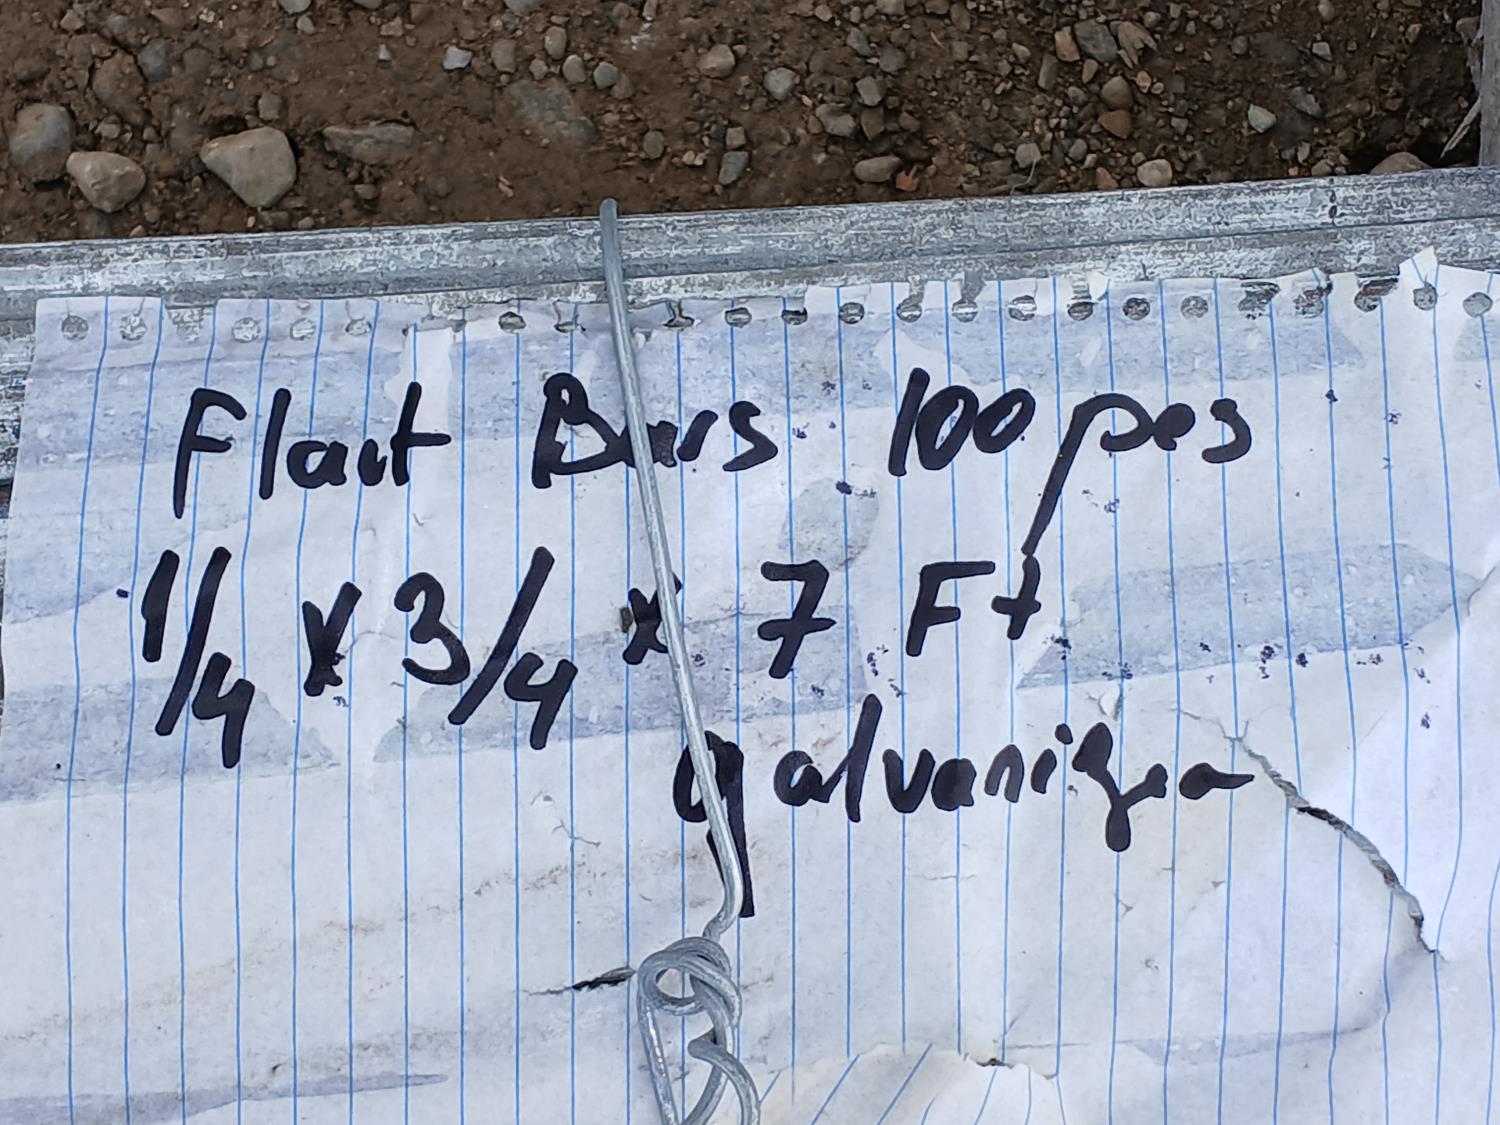 Flaut Bars 100 pes
1/4 x 3/4 x 7 Ft
galvanized